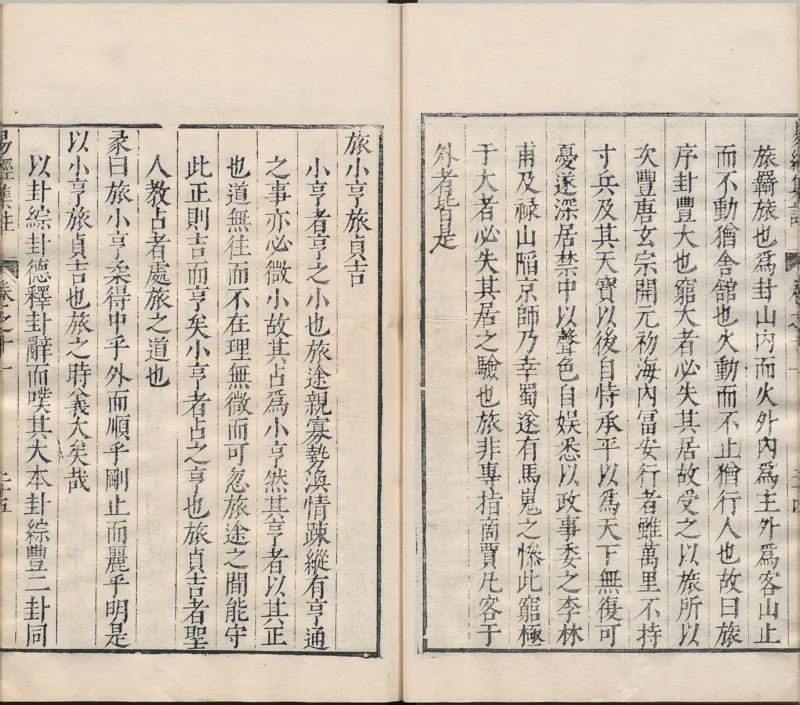 旅羇旅也為卦山內而火外內為主外為客山止
而不動猶舍舘也火動而不止猶行人也故曰旅
序卦豐大也窮大者必失其居故受之以旅所以
次豐唐玄宗開元初海內富安行者雖萬里不持
寸兵及其天寶以後自恃承平以為天下無復可
憂遂深居禁中以聲色自娱悉以政事委之李林
甫及禄山陷京師乃幸蜀遂有馬嵬之慘此窮極
于大者必失其居之驗也旅非專指商賈凡客于
外者皆是
旅小亨旅貞吉
小亨者亨之小也旅途親寡勢渙情踈縱有亨通
之事亦必微小故其占為小亨然其亨者以其正
也道無往而不在理無微而可忽旅途之間能守
此正則吉而亨矣小亨者占之亨也旅貞吉者聖
人教占者處旅之道也
彖曰旅小亨柔得中乎外而順乎剛止而麗乎明是
以小亨旅貞吉也旅之時義大矣哉
以卦綜卦德釋卦辭而嘆其大本卦綜豐二卦同
易經集註
卷之十一